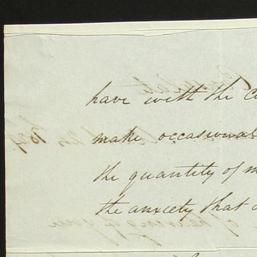 have with the C
make occasional
the quantity of m
the anxiety that a